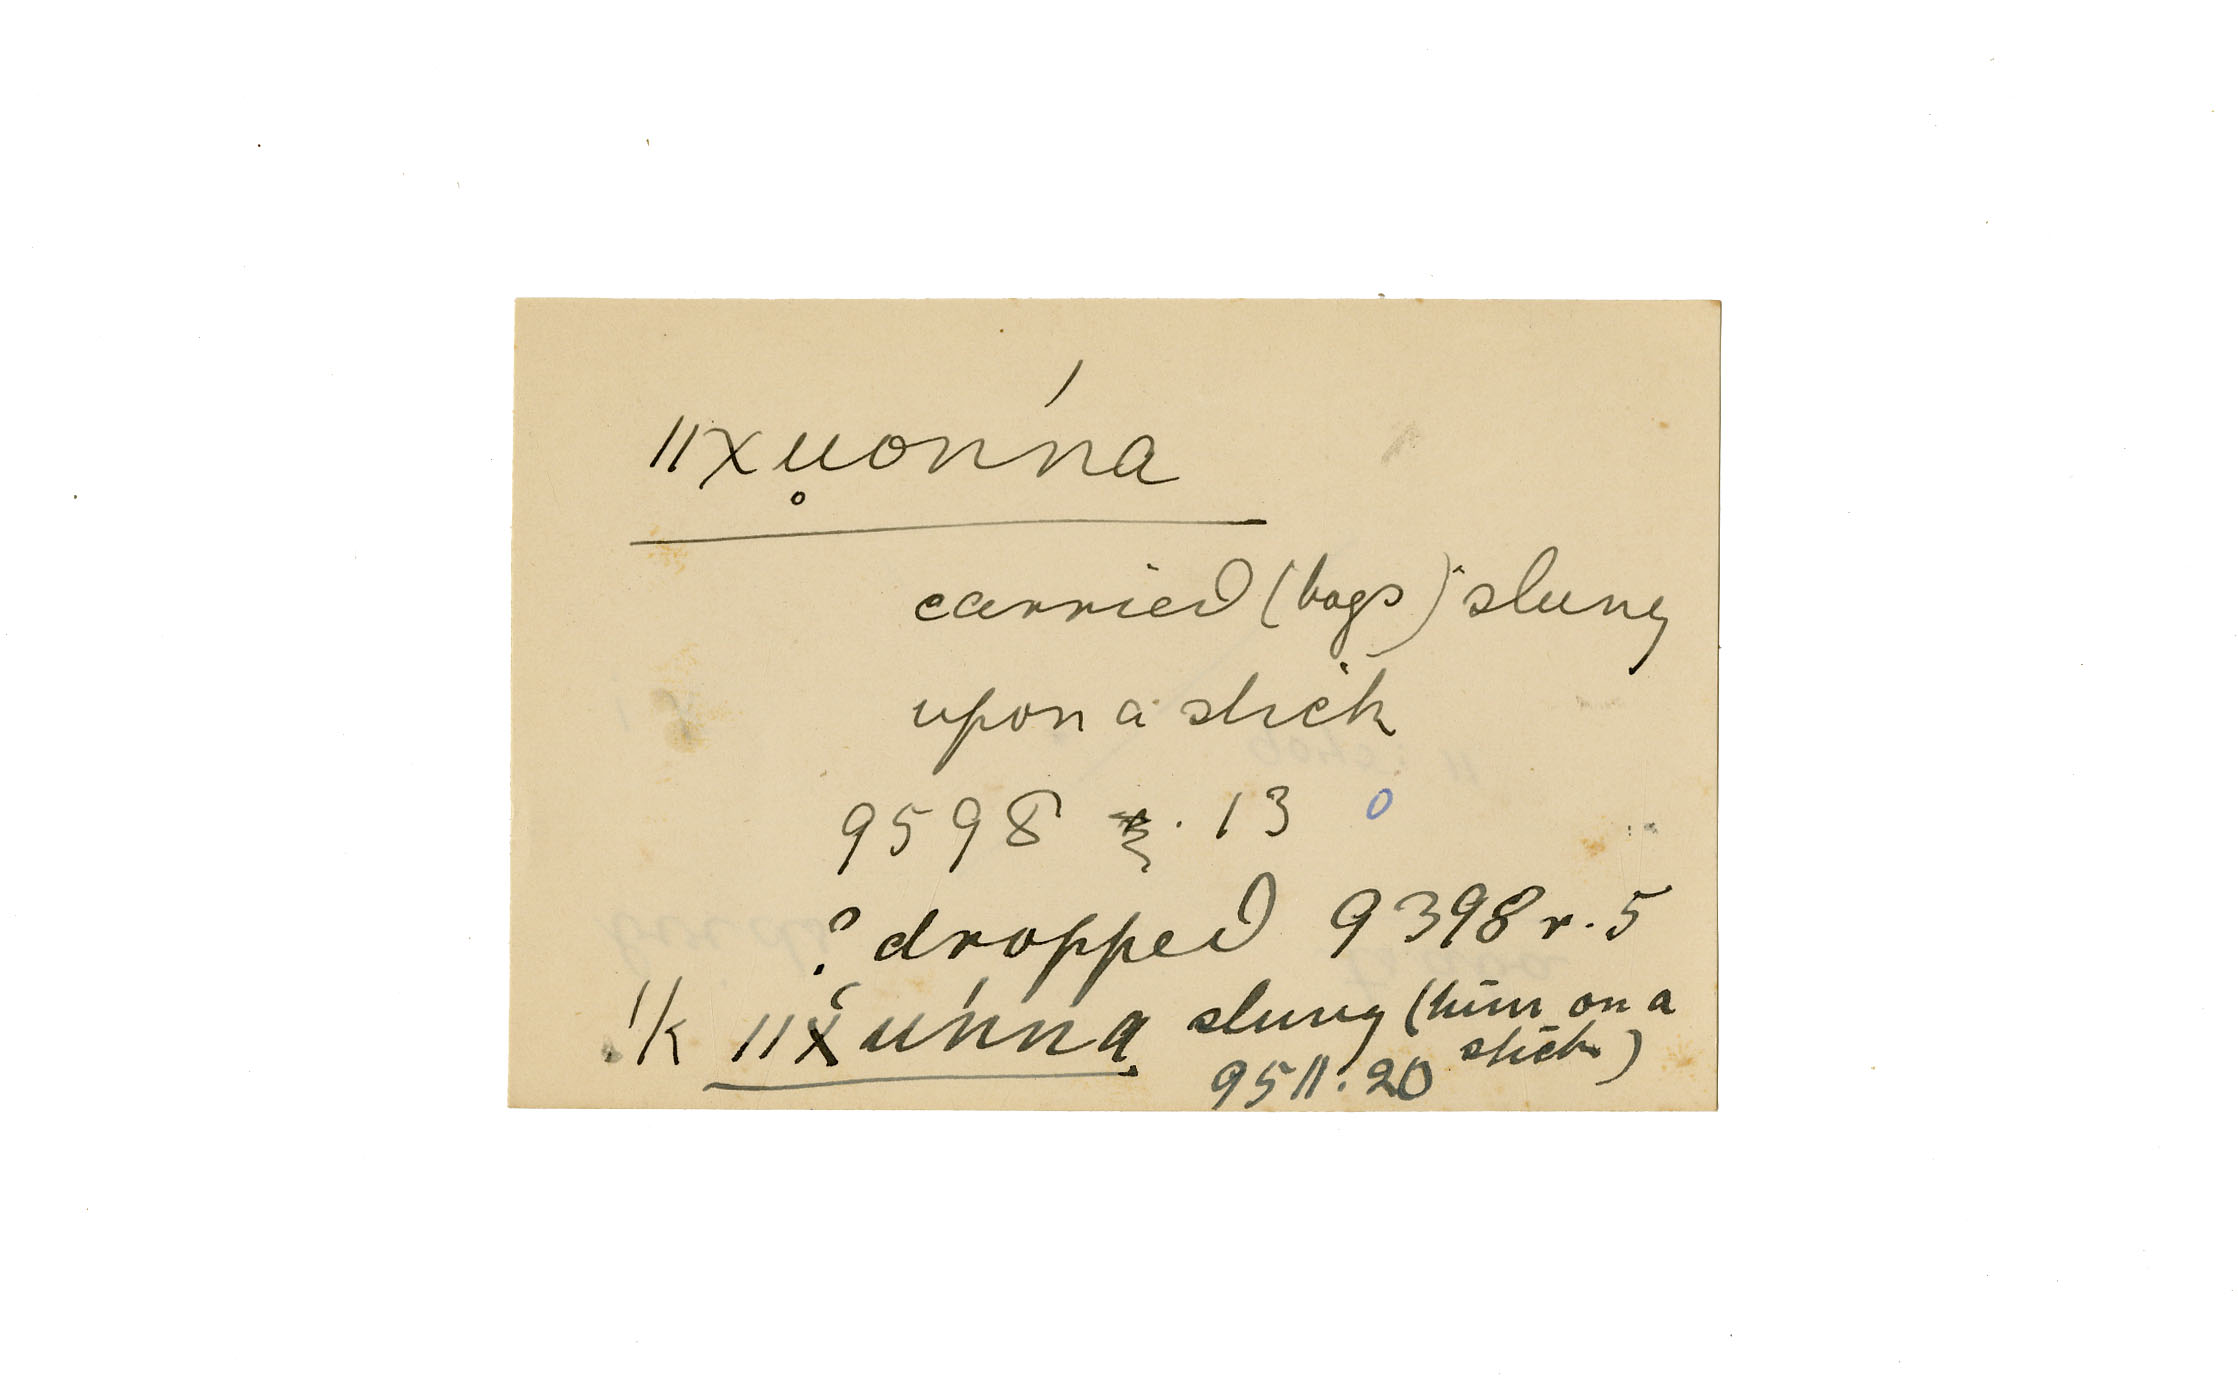 ǁχu̥onńa
carried (bags) slung
upon a stick
9598 . 13 0
? dropped 9398 r. 5
!k ǁχ̔unńa slung (him on a
stick)
9511. 20